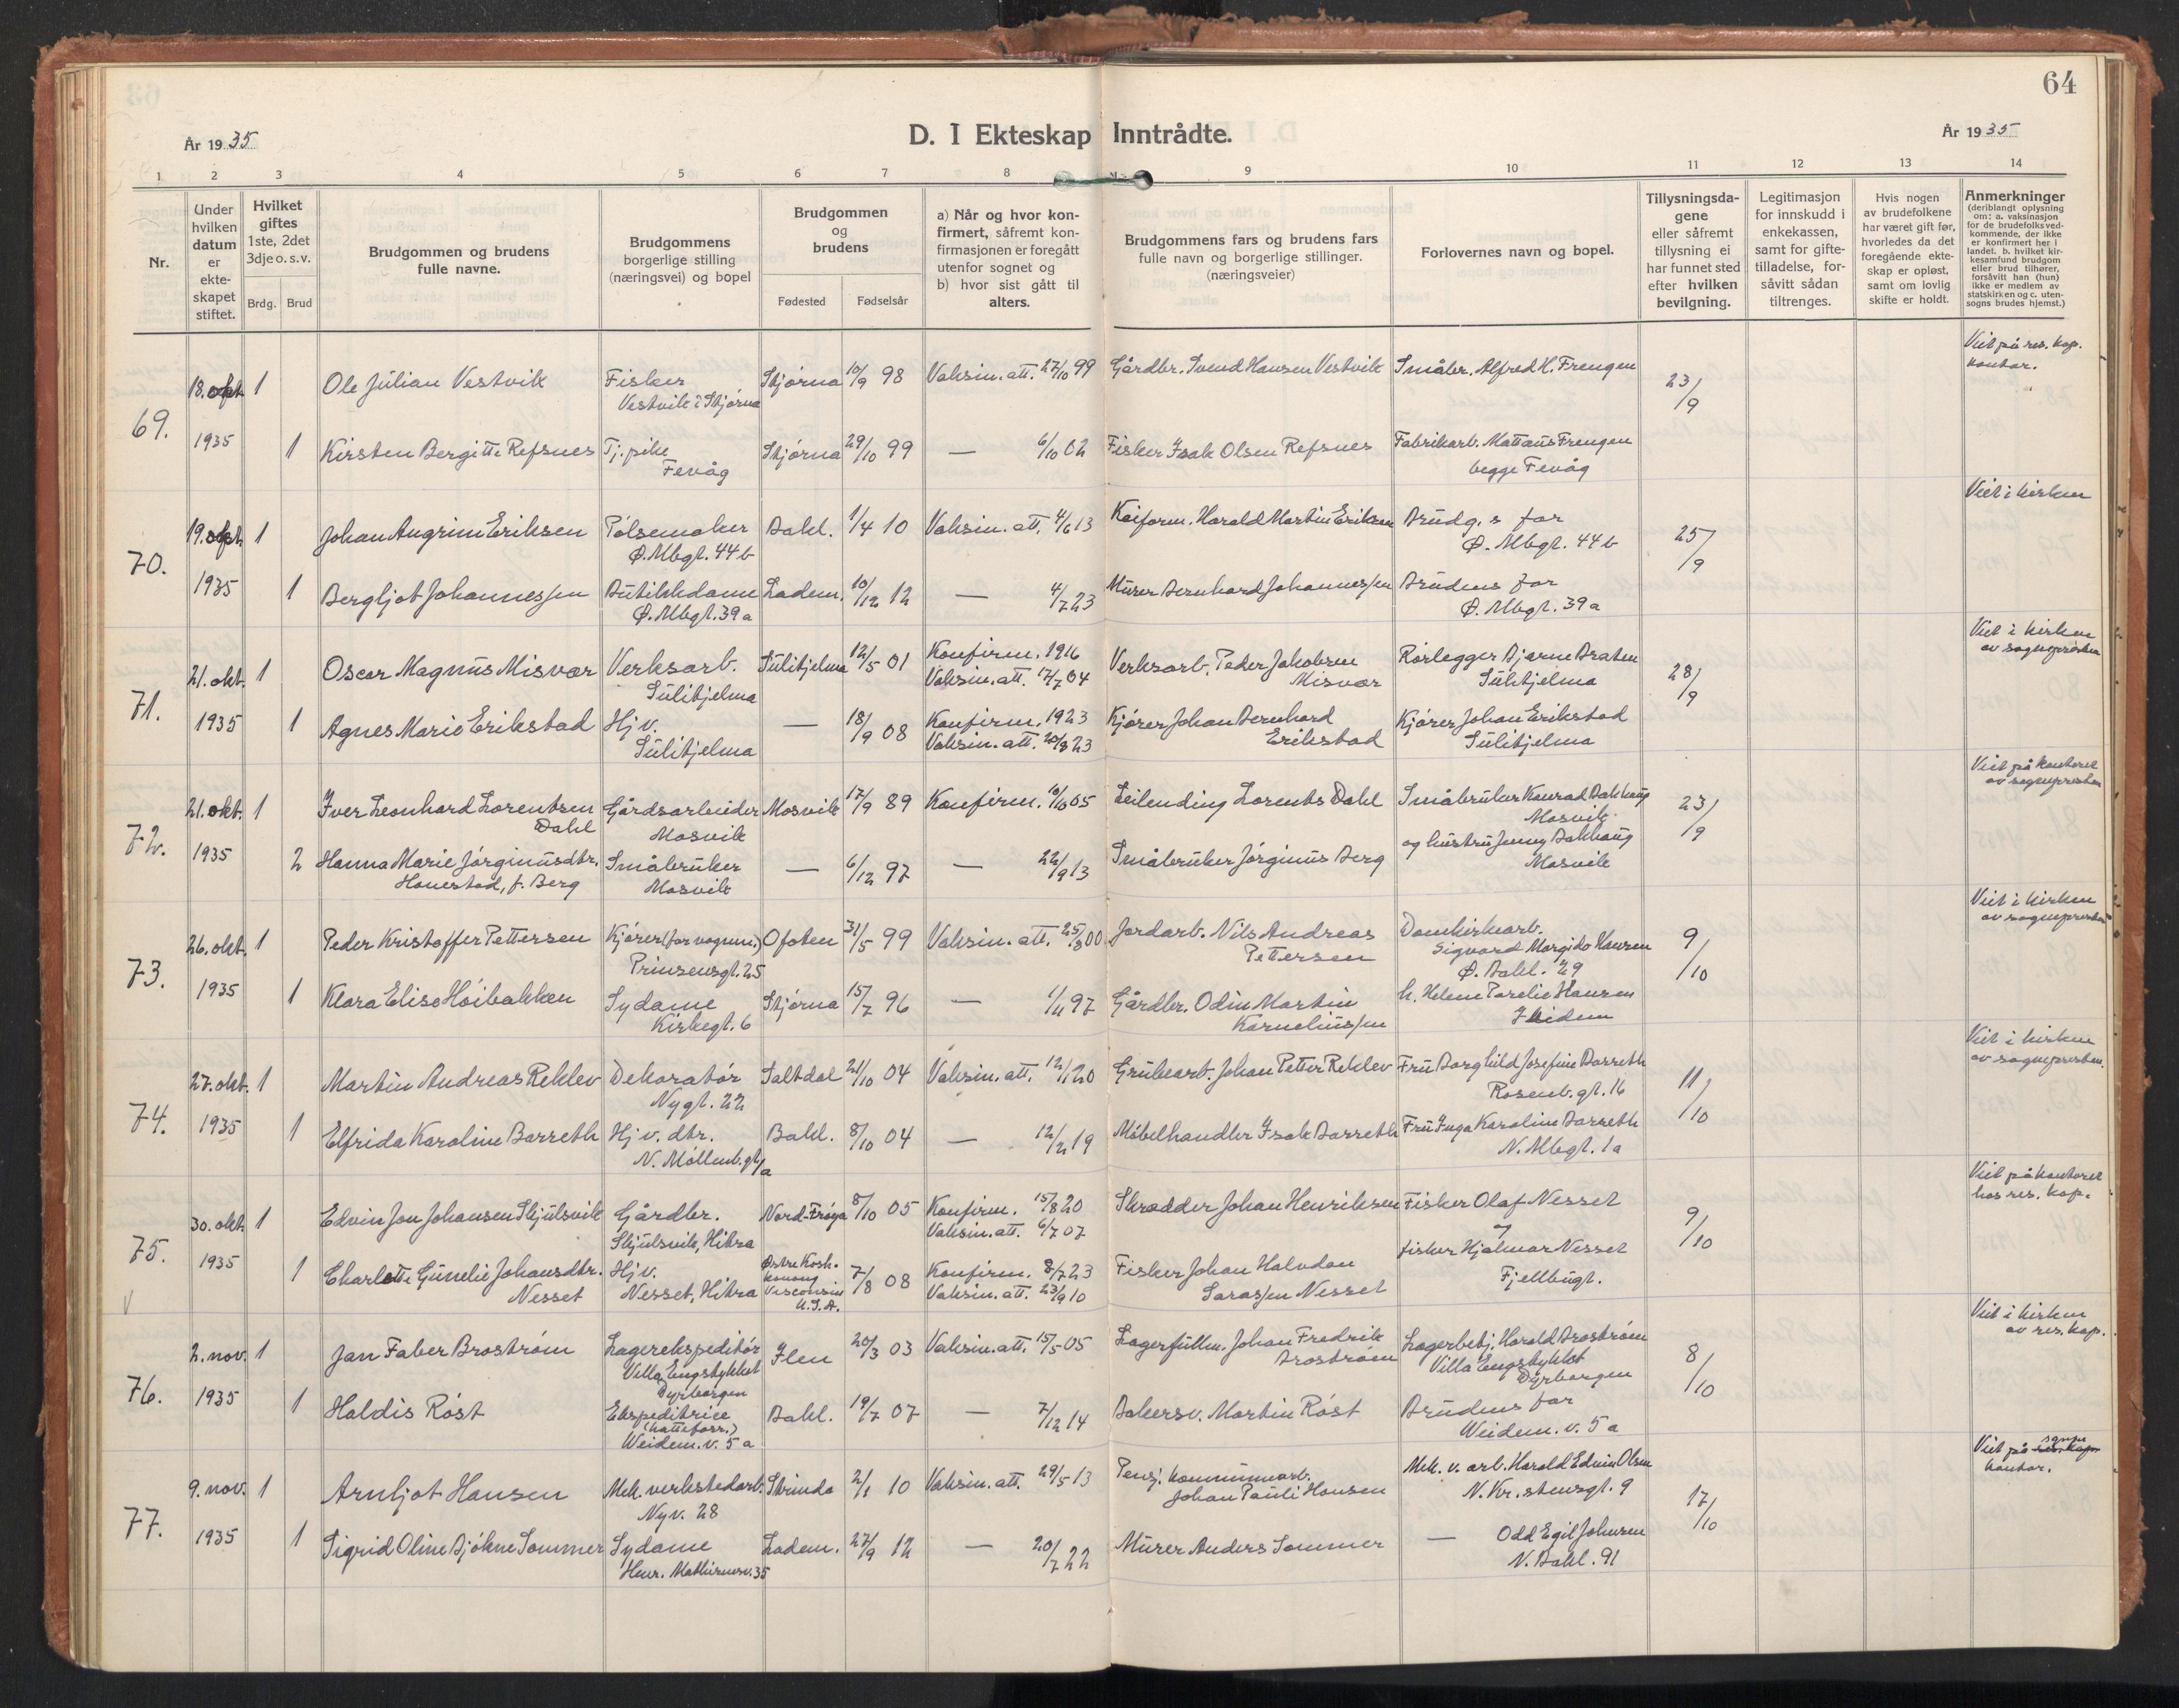 64
År 1935
D. I Ekteskap Inntrådte.
År 1935
1 2 3 4 5 6 7 8 9 10 11 12 13 14
Nr.
Under hvilken datum er ekteskapet stiftet.
Hvilket giftes 1ste, 2det 3dje o. s. v.
Brdg. Brud
Brudgommen og brudens fulle navne.
Brudgommens borgerlige stilling (næringsvei) og bopel
Brudgommen og brudens
Fødested Fødselsår
a) Når og hvor konfirmert, såfremt konfirmasjonen er foregått utenfor sognet og b) hvor sist gått til alters.
Brudgommens fars og brudens fars fulle navn og borgerlige stillinger. (næringsveier)
Forlovernes navn og bopel.
Tillysningsdagene eller såfremt tillysning ei har funnet sted efter hvilken bevilgning.
Legitimasjon for innskudd i enkekassen, samt for giftetilladelse, forsåvitt sådan tiltrenges.
Hvis nogen av brudefolkene har været gift før, hvorledes da det foregående ekteskap er opløst, samt om lovlig skifte er holdt.
Anmerkninger (deriblandt oplysning om: a. vaksinasjon for de brudefolksvedkommende, der ikke er konfirmert her i landet. b. hvilket kirkesamfund brudgom eller brud tilhører, forsåvitt han (hun) ikke er medlem av statskirken og c. utensogns brudes hjemst.)
69.
18. okt. 1935
1 Ole Julian Vestvik Fisker Vestvik i Stjørna Stjørna 10/9 98 Vaksin. att. 27/10 99 Gårdbr. Svend Hansen Vestvik Småbr. Alfred H. Frengen 23/9 Viet på res. kap. kontor.
1 Kirsten Bergitte Refsnes Tj. pike Fevåg Stjørna 29/10 99 — 6/10 02 Fisker Isak Olsen Refsnes Fabrikarb. Mattæus Frengen begge Fevåg
70.
19. okt. 1935
1 Johan Angrim Eriksen Pølsemaker Ø. Mbgt. 44b Bakl. 1/4 10 Vaksin. att. 4/6 13 Kaiform. Harald Martin Eriksen Brudg.s far Ø. Mbgt. 44b 25/9 Viet i kirken
1 Bergljot Johannessen Butikkdame Ø. Mbgt. 39a Ladem. 10/12 12 — 4/7 23 Murer Bernhard Johannessen Brudens far Ø. Mbgt. 39a
71.
21. okt. 1935
1 Oscar Magnus Misvær Verksarb. Sulitjelma Sulitjelma 12/5 01 Konfirm. 1916 Vaksin. att. 17/7 04 Verksarb. Peder Jakobsen Misvær Rørlegger Bjarne Braten Sulitjelma 28/9 Viet i kirken av sognepresten
1 Agnes Marie Erikstad Hjv. Sulitjelma — 18/9 08 Konfirm. 1923 Vaksin. att. 20/8 23 Kjører Johan Bernhard Erikstad Kjører Johan Erikstad Sulitjelma
72.
21. okt. 1935
1 Iver Leonhard Lorentsen Dahl Gårdsarbeider Mosvik Mosvik 17/9 89 Konfirm. 10/10 05 Leilending Lorents Dahl Småbruker Konrad Dahlhaug Mosvik 23/9 Viet på kontoret av sognepresten
2 Hanna Marie Jørginusdtr. Honestad, f. Berg Småbruker Mosvik — 6/12 97 — 22/9 13 Småbruker Jørginus Berg og hustru Jenny Dahlhaug Mosvik
73.
26. okt. 1935
1 Peder Kristoffer Pettersen Kjører (for vognm.) Prinsensgt. 25 Ofoten 31/5 99 Vaksin. att. 25/8 00 Jordarb. Nils Andreas Pettersen Domkirkearb. Sigvard Margido Hansen Ø. Bakl. 29 9/10 Viet i kirken av sognepresten
1 Klara Elise Höibakken Sydame Kirkegt. 6 Stjørna 15/7 96 — 1/11 97 Gårdbr. Odin Martin Kornelinssen h. Helene Parelie Hansen Ibidem
74.
27. okt. 1935
1 Martin Andreas Reklev Dekoratør Nygt. 22 Saltdal 21/10 04 Vaksin. att. 12/1 20 Grubearb. Johan Petter Reklev Fru Borghild Josefine Barreth Rosenb. gt. 16 11/10 Viet i kirken av sognepresten.
1 Elfrida Karoline Barreth Hjv. dtr. N. Møllenb. gt. 1a Bakl. 8/10 04 — 12/2 19 Møbelhandler Isak Barreth Fru Inga Karoline Barreth N. Mbgt. 1a
75.
30. okt. 1935
1 Edvin Jon Johansen Skjulsvik Gårdbr. Skjulsvik, Hitra Nord-Frøya 8/10 05 Konfirm. 15/8 20 Vaksin. att. 6/7 07 Skrædder Johan Henriksen Fisker Olaf Nesset 9/10 Viet på kontoret hos res. kap.
1 Charlotte Gunelie Johansdtr. Nesset Hjv. Nesset, Hitra Visconsin U.S.A. 7/8 08 Konfirm. 8/7 23 Vaksin. att. 23/9 10 Fisker Johan Halvdan Sarassen Nesset fisker Hjalmar Nesset Fjellbugt.
76.
2. nov. 1935
1 Jan Faber Broström Lagerekspeditør Villa Engstykket Dyrborgen Ilen 20/3 03 Vaksin. att. 15/5 05 Lagerfullm. Johan Fredrik Broström Lagerbetj. Harald Broström Villa Engstykket Dyrborgen 8/10 Viet i kirken av res. kap.
1 Haldis Röst Ekspeditrice (hatteforr.) Weidem. v. 5a Bakl. 19/7 07 — 7/12 14 Bakersv. Martin Röst Brudens far Weidem. v. 5a
77.
9. nov. 1935
1 Arnljot Hansen Mek. verkstedarb. Nyv. 28 Strinda 2/1 10 Vaksin. att. 29/5 13 Pensj. kommunearb. Johan Pauli Hansen Mek. v. arb. Harald Edvin Olsen N. Kr. stensgt. 9 17/10 Viet på sgnpr kontor.
1 Sigrid Oline Bjökne Sommer Sydame Henr. Mathiesensv. 35 Ladem. 27/9 12 — 20/7 22 Murer Anders Sommer — Odd Egil Johnsen N. Bakl. 91